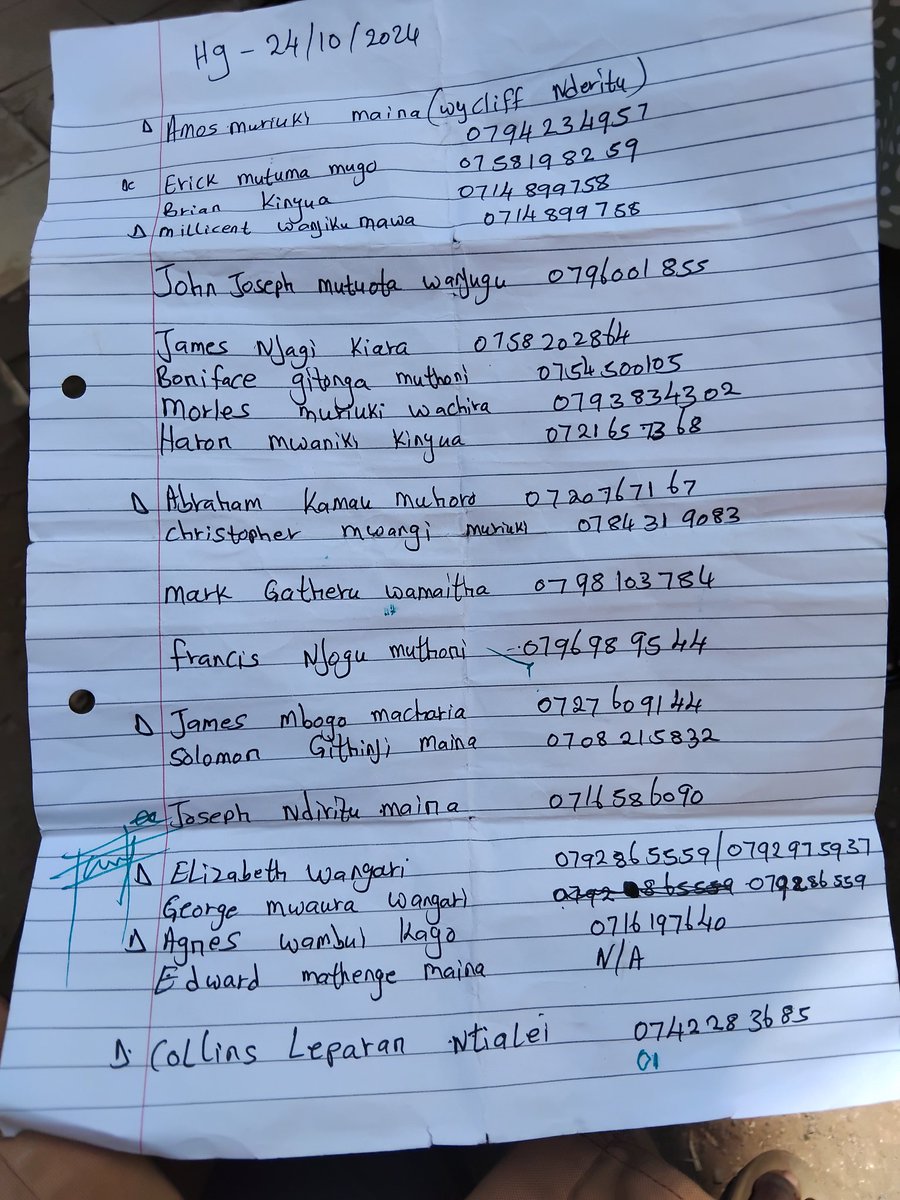 Hg - 24/10/2024
Δ Amos muriuki maina (wycliff Nderitu)
0794234957
Erick mutuma mugo 0758198259
Brian Kinyua 0714899758
Δ millicent wanjiku mawa 0714899758
John Joseph mutuota wanjugu 0796001855
James Njagi Kiara 0758202864
Boniface gitonga muthoni 0754500105
Morles muriuki wachira 0793834302
Haron mwaniki Kinyua 0721657368
Δ Abraham Kamau muhoro 0720767167
christopher mwangi muriuki 0784319083
mark Gatheru wamaitha 0798103784
francis Njogu muthoni 0796989544
Δ James mbogo macharia 0727609144
Solomon Githinji maina 0708215832
Joseph Ndiritu maina 0716586090
Δ Elizabeth wangari 0792865559/0792975937
George mwaura wangari 0792 865559 079286559
Δ Agnes wambui kago 0716197640
Edward mathenge maina N/A
Δ Collins Leparan Ntialei 0742283685
01